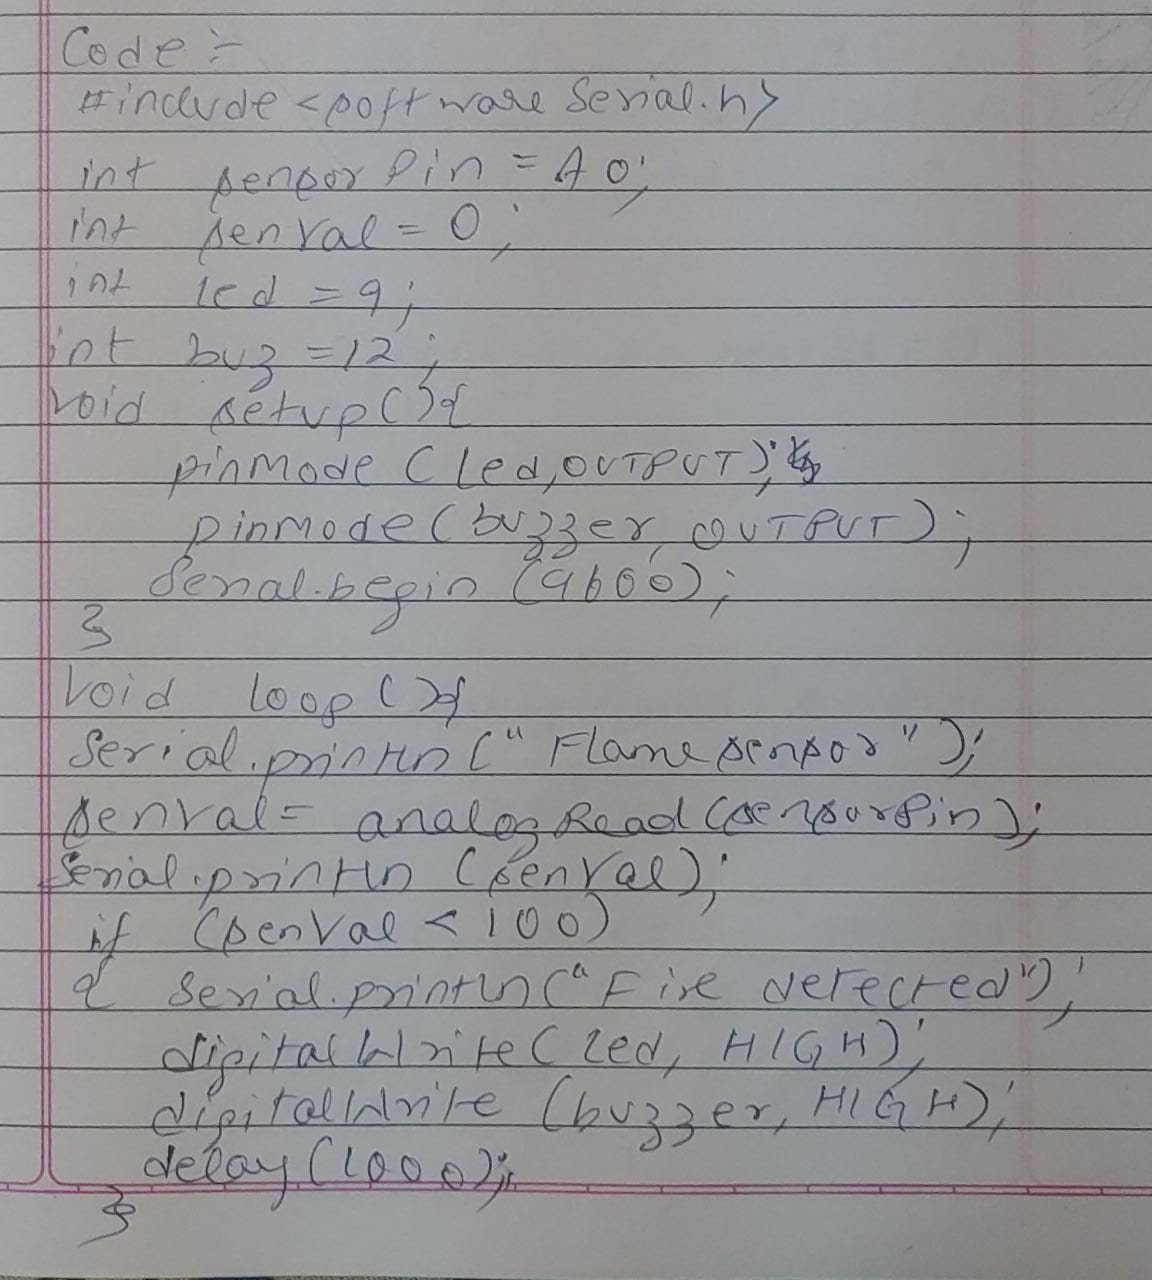 Code :-
#include <software Serial.h>
int sensor Pin = A0;
int senVal = 0;
int led = 9;
int buz = 12;
void setup(){
pinMode (led,OUTPUT);
pinMode(buzzer, OUTPUT);
Serial.begin (9600);
}
void loop(){
Serial.println (" Flame sensor ");
senval = analog Read (sensorPin);
Serial.println (senVal);
if (senVal < 100)
{ Serial.println ("Fire detected");
digitalWrite (led, HIGH);
digitalWrite (buzzer, HIGH);
delay (1000);
}